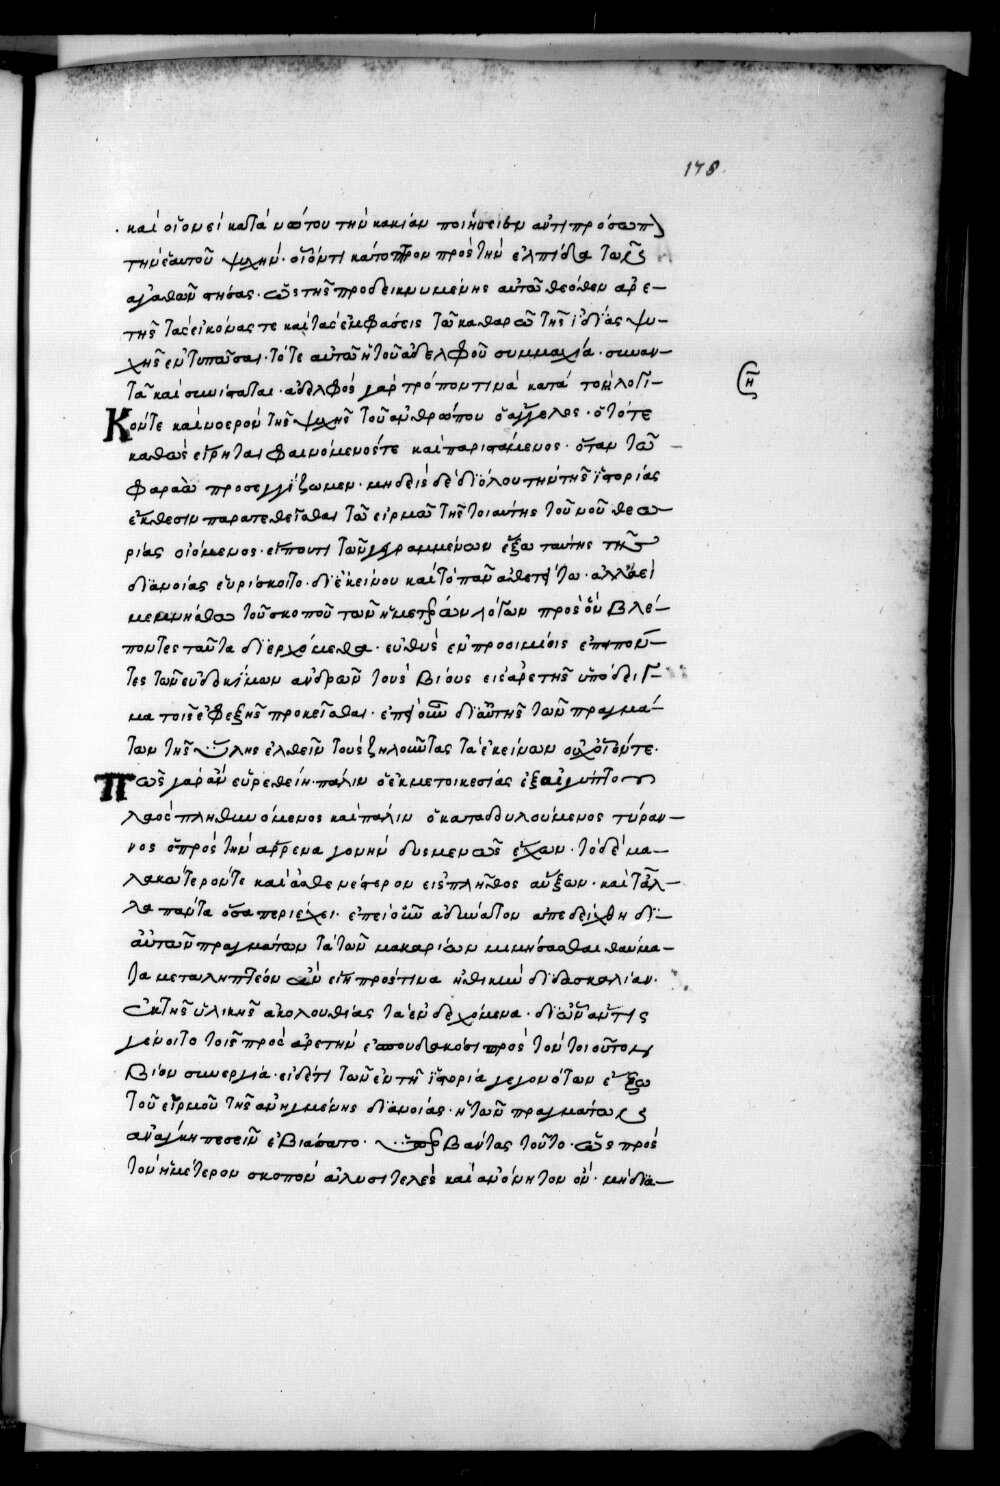 178
καὶ οἱονεὶ κατὰ νώτου τὴν κακίαν ποιήσειεν ἀντιπρόσωπ
τὴν ἑαυτοῦ ψυχήν· οἷόν τι κάτοπτρον πρὸς τὴν ἐλπίδα τῶν
ἀγαθῶν στήσας· ὡς τῆς προδεικνυμένης αὐτῶ θεόθεν ἀρε–
τῆς τὰς εἰκόνας τε καὶ τὰς ἐμφάσεις τῶ καθαρῶ τῆς ἰδίας ψυ–
χῆς ἐντυπῶσαι· τότε αὐτῶ ἡ τοῦ ἀδελφοῦ συμμαχία· συναν–
τᾶ καὶ συνίσταται· ἀδελφὸς γὰρ τρόπον τινὰ κατὰ τὸ λογι–
(η)
κόν τε καὶ νοερὸν τῆς ψυχῆς τοῦ ἀνθρώπου ὁ ἄγγελος· ὁ τότε
καθὼς εἴρηται φαινόμενός τε καὶ παριστάμενος· ὅταν τῶ –
φαραὼ προσεγγίζωμεν· μηδεὶς δὲ δϊόλου τὴν τῆς ἱστορίας
ἔκθεσιν παρατεθεῖσθαι τῶ εἱρμῶ τῆς τοιαύτης τοῦ νοῦ θεω
ρίας οἰόμενος· εἴπου τι τῶν γεγραμμένων ἔξω ταύτης τῆς
δϊανοίας εὑρίσκοιτο· δϊ' ἐκείνου καὶ τὸ πᾶν ἀθετείτω· ἀλλ' ἀεὶ
μεμνήσθω τοῦ σκοποῦ τῶν ἡμετέρων λόγων πρὸς ὃν βλέ–
ποντες ταῦτα δϊερχόμεθα· εὐθὺς ἐν προοιμίοις εἰπόν
τες τῶν εὐδοκίμων ἀνδρῶν τοὺς βίους εἰς ἀρετῆς ὑπόδειγ–
μα τοῖς ἐφεξῆς προκεῖσθαι· ἐπεὶ οὖν δϊ' αὐτῆς τῶν πραγμά–
των τῆς ὕλης ἐλθεῖν τοὺς ζηλοῦντας τὰ ἐκείνων οὐχ οἷόν τε·
Πῶς γὰρ ἂν εὑρεθείη· πάλιν ὁ ἐκ μετοικεσίας ἐξ αἰγύπτου
λαὸς πληθυνόμενος καὶ πάλιν ὁ καταδουλούμενος τύραν–
νος ὁ πρὸς τὴν ἄρρενα γονὴν δυσμενῶς ἔχων· τὸ δὲ μα–
λακώτερόν τε καὶ ἀσθενέστερον εἰς πλῆθος αὔξων· καὶ τἆλ–
λα πάντα ὅσα περιέχει· ἐπεὶ οὖν ἀδύνατον ἀπεδείχθη δϊ–
αὐτῶν πραγμάτων τὰ τῶν μακαρίων μιμήσασθαι θαύμα–
τα μεταληπτέον ἂν εἴη πρός τινα ἠθικὴν διδασκαλίαν·
ἐκ τῆς ὑλικῆς ἀκολουθίας τὰ ἐνδεχόμενα· δϊ' ὧν ἄν τις
γένοιτο τοῖς πρὸς ἀρετὴν ἐσπουδακόσι πρὸς τὸν τοιοῦτον
βίον συνεργία· εἰ δέ τι τῶν ἐν τῆ ἱστορία γεγονότων ἔξω
τοῦ εἱρμοῦ τῆς ἀνηγμένης δϊανοίας· ἡ τῶν πραγμάτων
ἀνάγκη πεσεῖν ἐβιάσατο· ὑπερβάντας τοῦτο· ὡς πρὸς
τὸν ἡμέτερον σκοπὸν ἀλυσιτελὲς καὶ ἀνόνητον ὄν· μὴ δϊα–